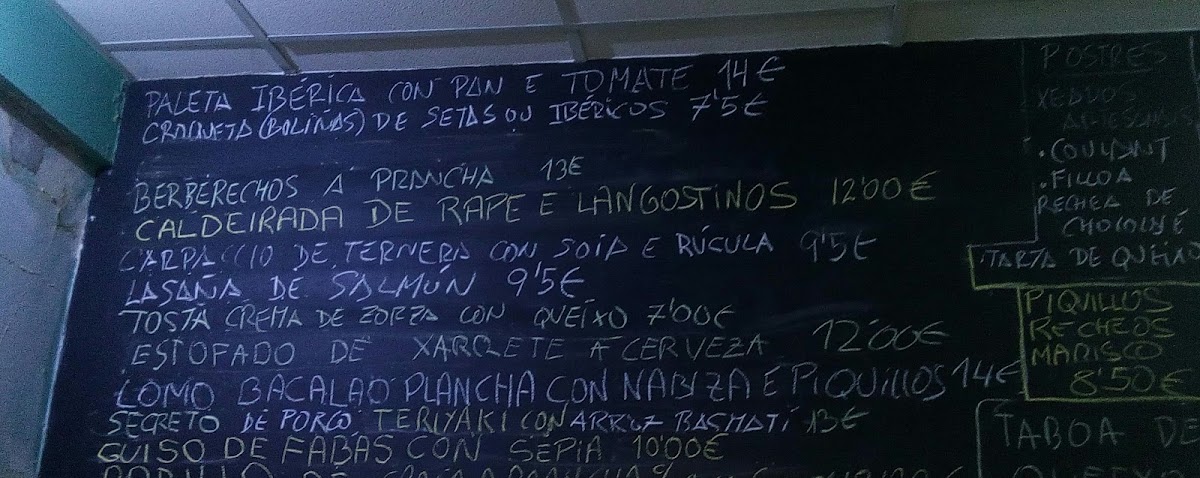 PALETA IBÉRICA CON PAN E TOMATE 14€
CROQUETA (BOLINAS) DE SETAS OU IBÉRICOS 7'5€
BERBERECHOS A PRANCHA 13€
CALDEIRADA DE RAPE E LANGOSTINOS 12'00€
CARPACCIO DE TERNERA CON SOIA E RÚCULA 9'5€
LASAÑA DE SALMÚN 9'5€
TOSTA CREMA DE ZORZA CON QUEIXO 7'00€
ESTOFADO DE XARRETE A CERVEZA 12'00€
LOMO BACALAO PLANCHA CON NABIZA E PIQUILLOS 14€
SEGRETO DE PORCO TERIYAKI CON ARROZ BASMATI 13€
GUISO DE FABAS CON SEPIA 10'00€
POSTRES
XEADOS
.COULANT
.FILLOA
RECHEA DE
TARTA DE
PIQUILLOS
RECHEOS
MARISCO
8'50€
TABOA DE